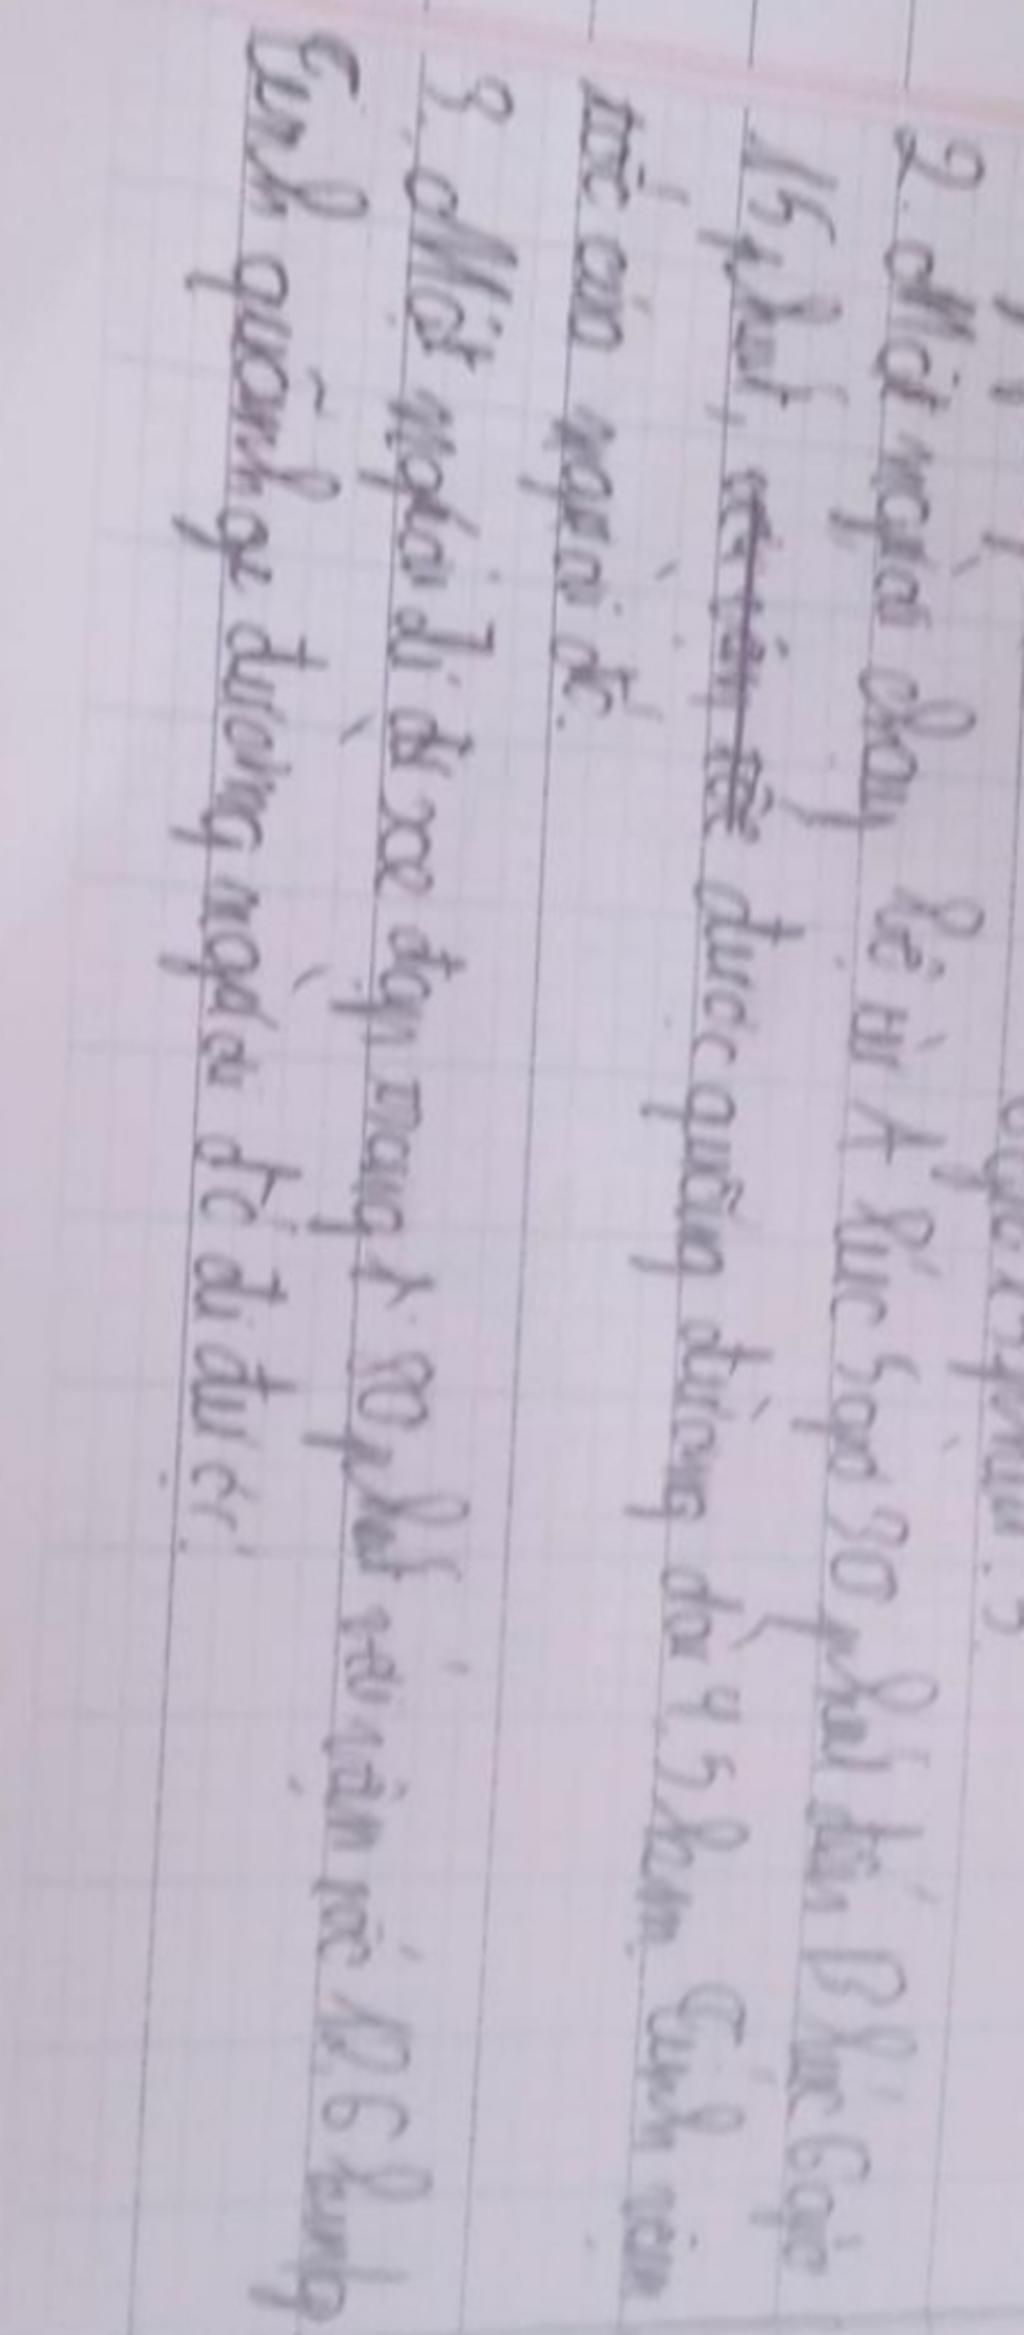 2. Một người chạy bộ từ A lúc 5 giờ 30 phút đến B lúc 6 giờ
15 phút, được quãng đường dài 4,5 km. Tính vận
tốc của người đó.
3. Một người đi xe đạp trong 1 30 phút với vận tốc 12,6 km/g
Tính quãng đường người đó đi được